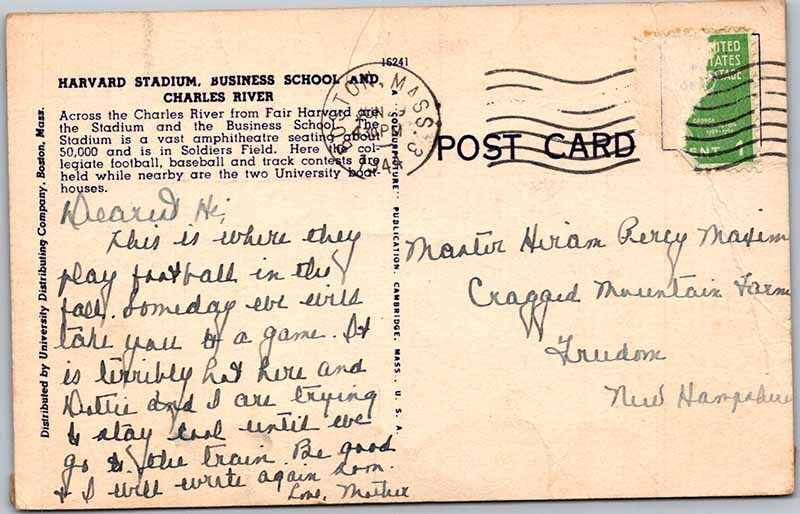 16241
HARVARD STADIUM, BUSINESS SCHOOL AND
CHARLES RIVER
Across the Charles River from Fair Harvard are
the Stadium and the Business School. The
Stadium is a vast amphitheatre seating about
50,000 and is in Soldiers Field. Here the col-
legiate football, baseball and track contests are
held while nearby are the two University boat
houses.
Distributed by University Distributing Company, Boston, Mass.
A "COLOURPICTURE" PUBLICATION, CAMBRIDGE, MASS., U. S. A.
BOSTON, MASS. 3
430 PM
POST CARD
UNITED
STATES
POSTAGE
CENT 1
Dearest Hi,
This is where they
play football in the
fall. Someday we will
take you to a game. It
is terribly hot here and
Dottie and I are trying
to stay cool until we
go to the train. Be good
& I will write again soon.
Love, Mother
Master Hiram Percy Maxim
Cragged Mountain Farm
Freedom
New Hampshire